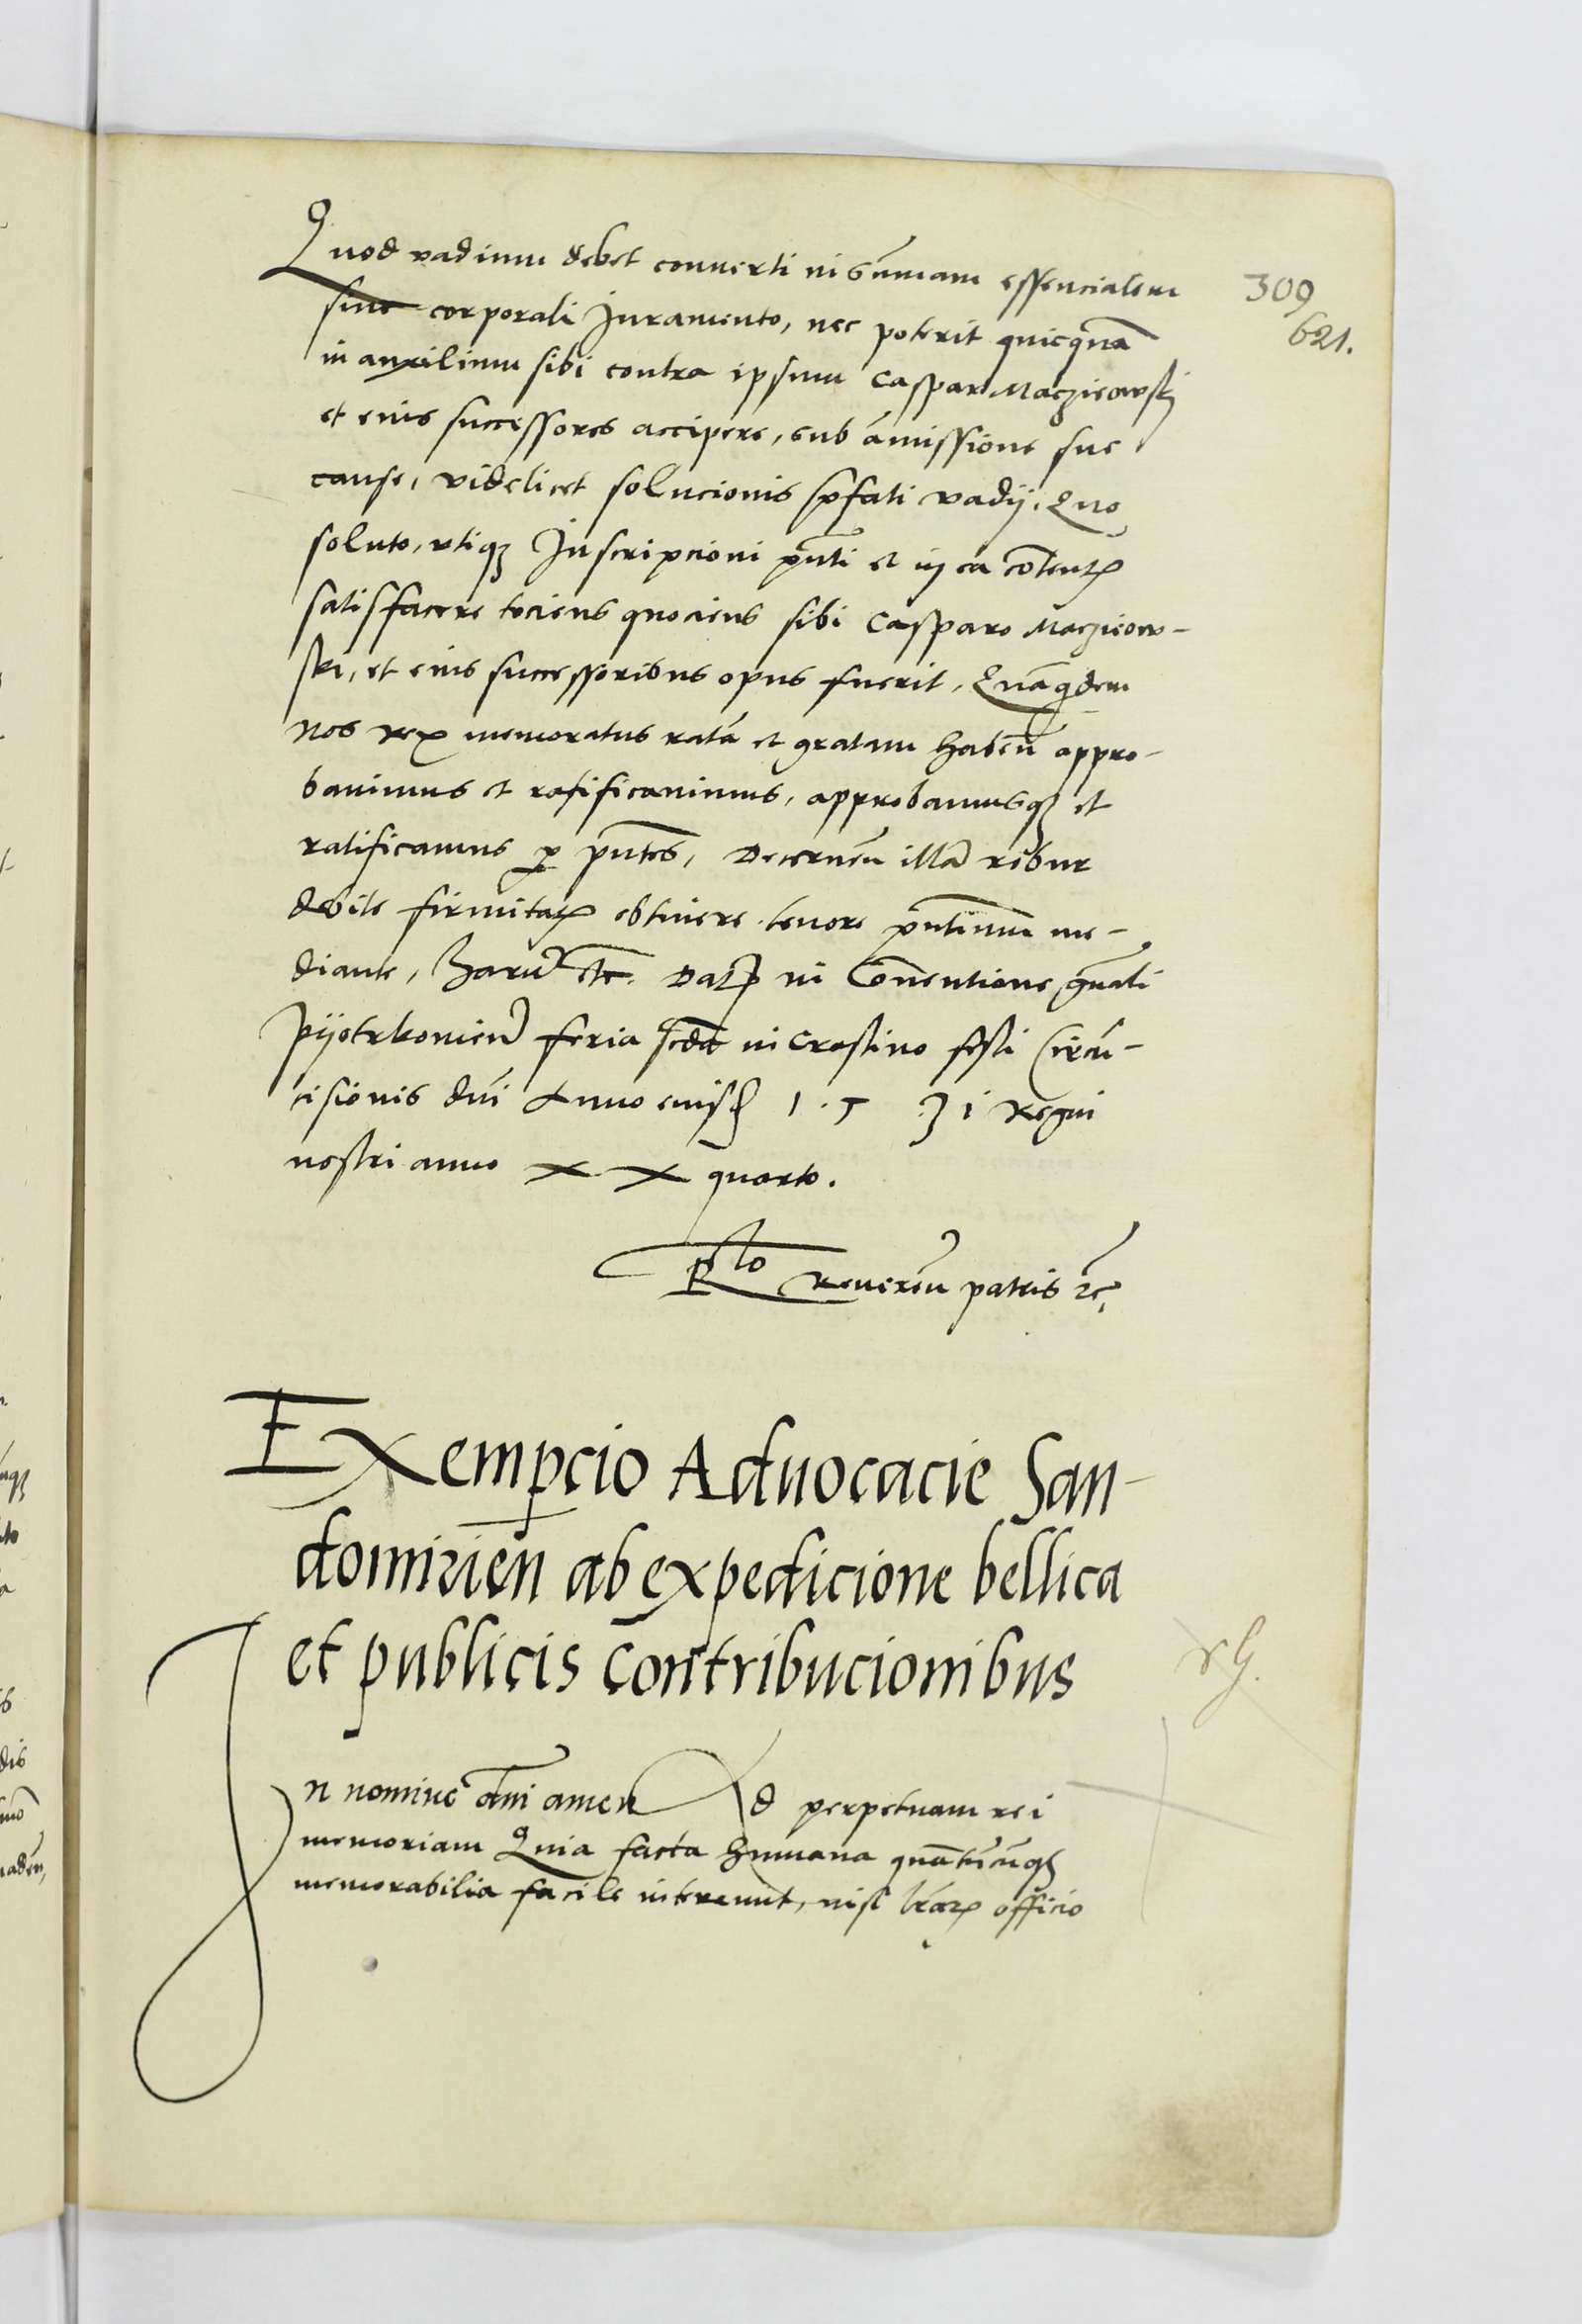 309
621.
Quod vadium debet conuerti in sūmam essencialem
sine corporali Juramento, nec poterit quicquā
in auxilium sibi contra ipsum Caspar Macziowskj
et eius successores accipere, sub āmissione sue
cause, videlicet solucionis p̄fati vadij. Quo
soluto, vtiqꝫ Inscripcioni p̄nti et in ea cōtentꝫ
satisfacere tociens quociens sibi Casparo Maczieow-
ski, et eius successoribus opus fuerit, Quāqdem
nos Rex memoratus ratā et gratam habeñ appro-
bauimus et ratificauimus, approbamusqꝫ et
ratificamus p̱ p̄ntes, Decerneñ illā robur
debite firmitatꝫ obtinere tenore p̄ntium me-
diante, Harū etc. Datꝫ in Cōuentione gn̄ali
Pijotrkouieñ feria scda in Crastino festi Circū-
cisionis dn̄i Anno eiusd 1.5 31 Regni
nostri anno XX quarto.
Rlo Reuereñ patris ꝛc̄
Exempcio Aduocacie San-
domirieñ ab expedicione bellica
et publicis contribucionibus
In nomine dn̄i amen Ad perpetuam rei
memoriam Quia facta humana quātūcūqꝫ
memorabilia facile intereunt, nisi lrārꝫ officio